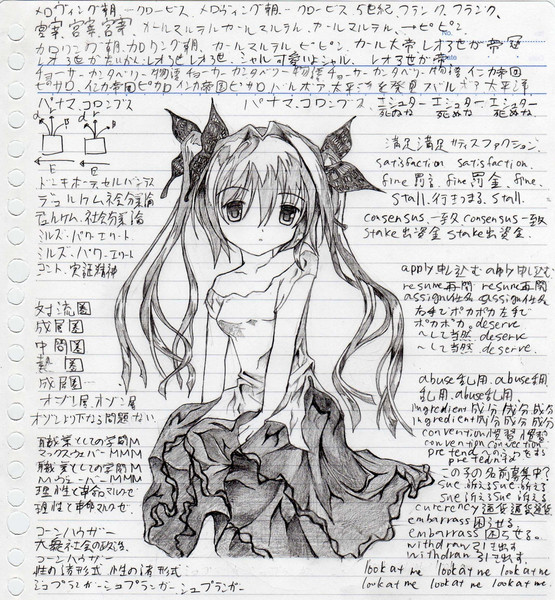 メロヴィング朝ークロービス、メロヴィング朝、ークロービス 5世紀、フランク、フランク、
宮宰、宮宰、宮宰 カールマルテルカールマルテル、カールマルテル、→ピピン
カロリング朝、カロリング朝、カールマルテル、ピピン、カール大帝、レオ3世が帝冠
レオ3世 レオ3世、シャル可愛いよシャル、レオ3世が帝
チョーサーカンタベリー物語チョーサーカンタベリー物語チョーサーカンタベリー物語 インカ帝国
ピサロ、インカ帝国ピサロ インカ帝国ピサロ バルボア 太平洋を発見 バルボア 太平洋
パナマ、コロンブス パナマ、コロンブス、エシュターエシューターエシューター
死ぬね 死ぬね 死ぬね
満足満足サティスファクション、
satisfaction satisfaction.
ドンキホーテ、セルバンテス
fine 罰金、fine 罰金、fine.
デュルケム、社会分業論
stall、行きづまる、stall.
デュルケム、社会分業論
consensus、一致consensus一致
ミルズ、パワーエリート、
stake出資金 stake出資金.
ミルズ、パワーエリート、
コント、実証精神
apply申し込むapply申し込む
resume再開 resume再開
assign任命 assign任命
対流圏
右手でポカポカ左手で
成層圏
ポカポカ。deserve
中間圏
〜して当然 deserve
熱圏
〜して当然 deserve.
成層圏…
abuse乱用、abuse乱用
オゾン層、オゾン層
乱用、abuse乱用.
ingredient成分成分成分
オゾンより下なら問題ない
ingredient成分成分成分
職業としての学問M
convention慣習 慣習
マックスウェーバーMMM
convention convention
職業としての学問M
pretend
Mウェーバー MMM
この子の名前募集中?
理性と革命マルクーゼ
sue 訴えるsue 訴える
理性と革命マルクーゼ
sue 訴えるsue 訴える
currency通貨通貨通貨
コーンハウザー
embarrass 困らせる.
大衆社会の政治、
embarrass 困らせる。
コーンハウザー
withdraw 引き出す
withdraw 引き出す.
性の諸形式 性の諸形式
look at me look at me look at me
シュプランガーシュプランガー、シュプランガー
look at me look at me look at me